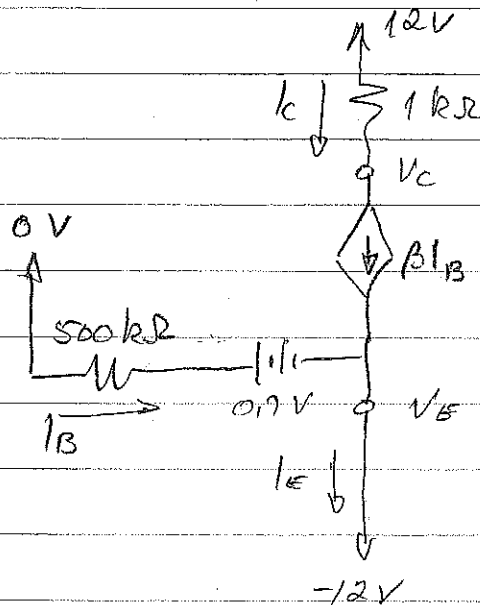 12V
Ic
1 kΩ
Vc
0 V
βIB
500kΩ
0,7 V
VE
IB
IE
-12V